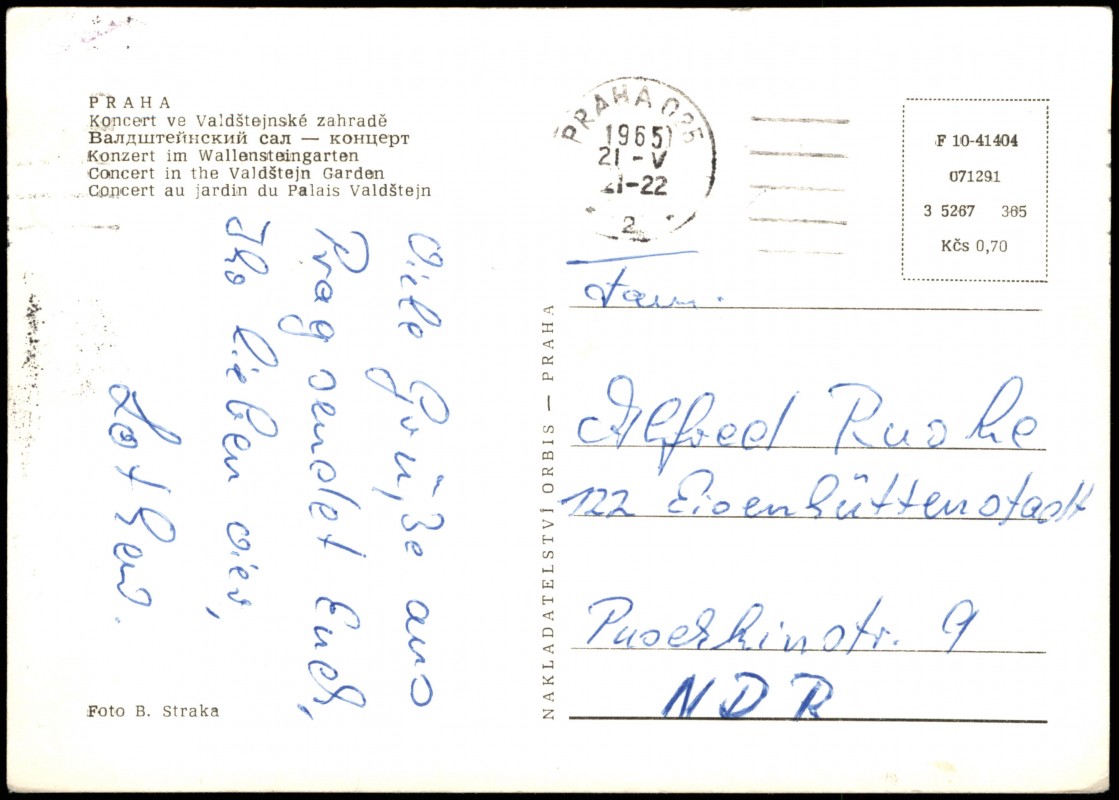 PRAHA
Koncert ve Valdštejnské zahradě
Валдштейнский сал — концерт
Konzert im Wallensteingarten
Concert in the Valdštejn Garden
Concert au jardin du Palais Valdštejn
PRAHA 025
1965
21-V
21-22
2
F 10-41404
071291
3 5267 365
Kčs 0,70
Viele Grüße aus
Prag sendet Euch,
Ihr lieben vier,
Lothar.
NAKLADATELSTVÍ ORBIS — PRAHA
Fam.
Alfred
122 Eisenhüttenstadt
Puschkinstr. 9
NDR
Foto B. Straka